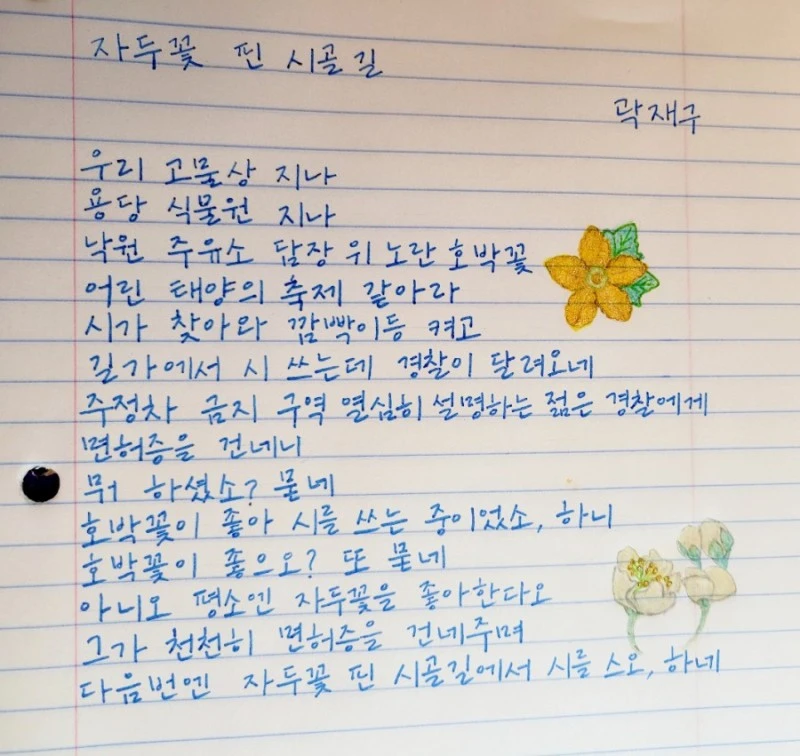 자두꽃 핀 시골길
곽재구
우리 고물상 지나
용당 식물원 지나
낙원 주유소 담장 위 노란 호박꽃
어린 태양의 축제 같아라
시가 찾아와 깜빡이등 켜고
길가에서 시 쓰는데 경찰이 달려오네
주정차 금지 구역 열심히 설명하는 젊은 경찰에게
면허증을 건네니
뭐 하셨소? 묻네
호박꽃이 좋아 시를 쓰는 중이었소, 하니
호박꽃이 좋으오? 또 묻네
아니오 평소엔 자두꽃을 좋아한다오
그가 천천히 면허증을 건네주며
다음번엔 자두꽃 핀 시골길에서 시를 스오, 하네